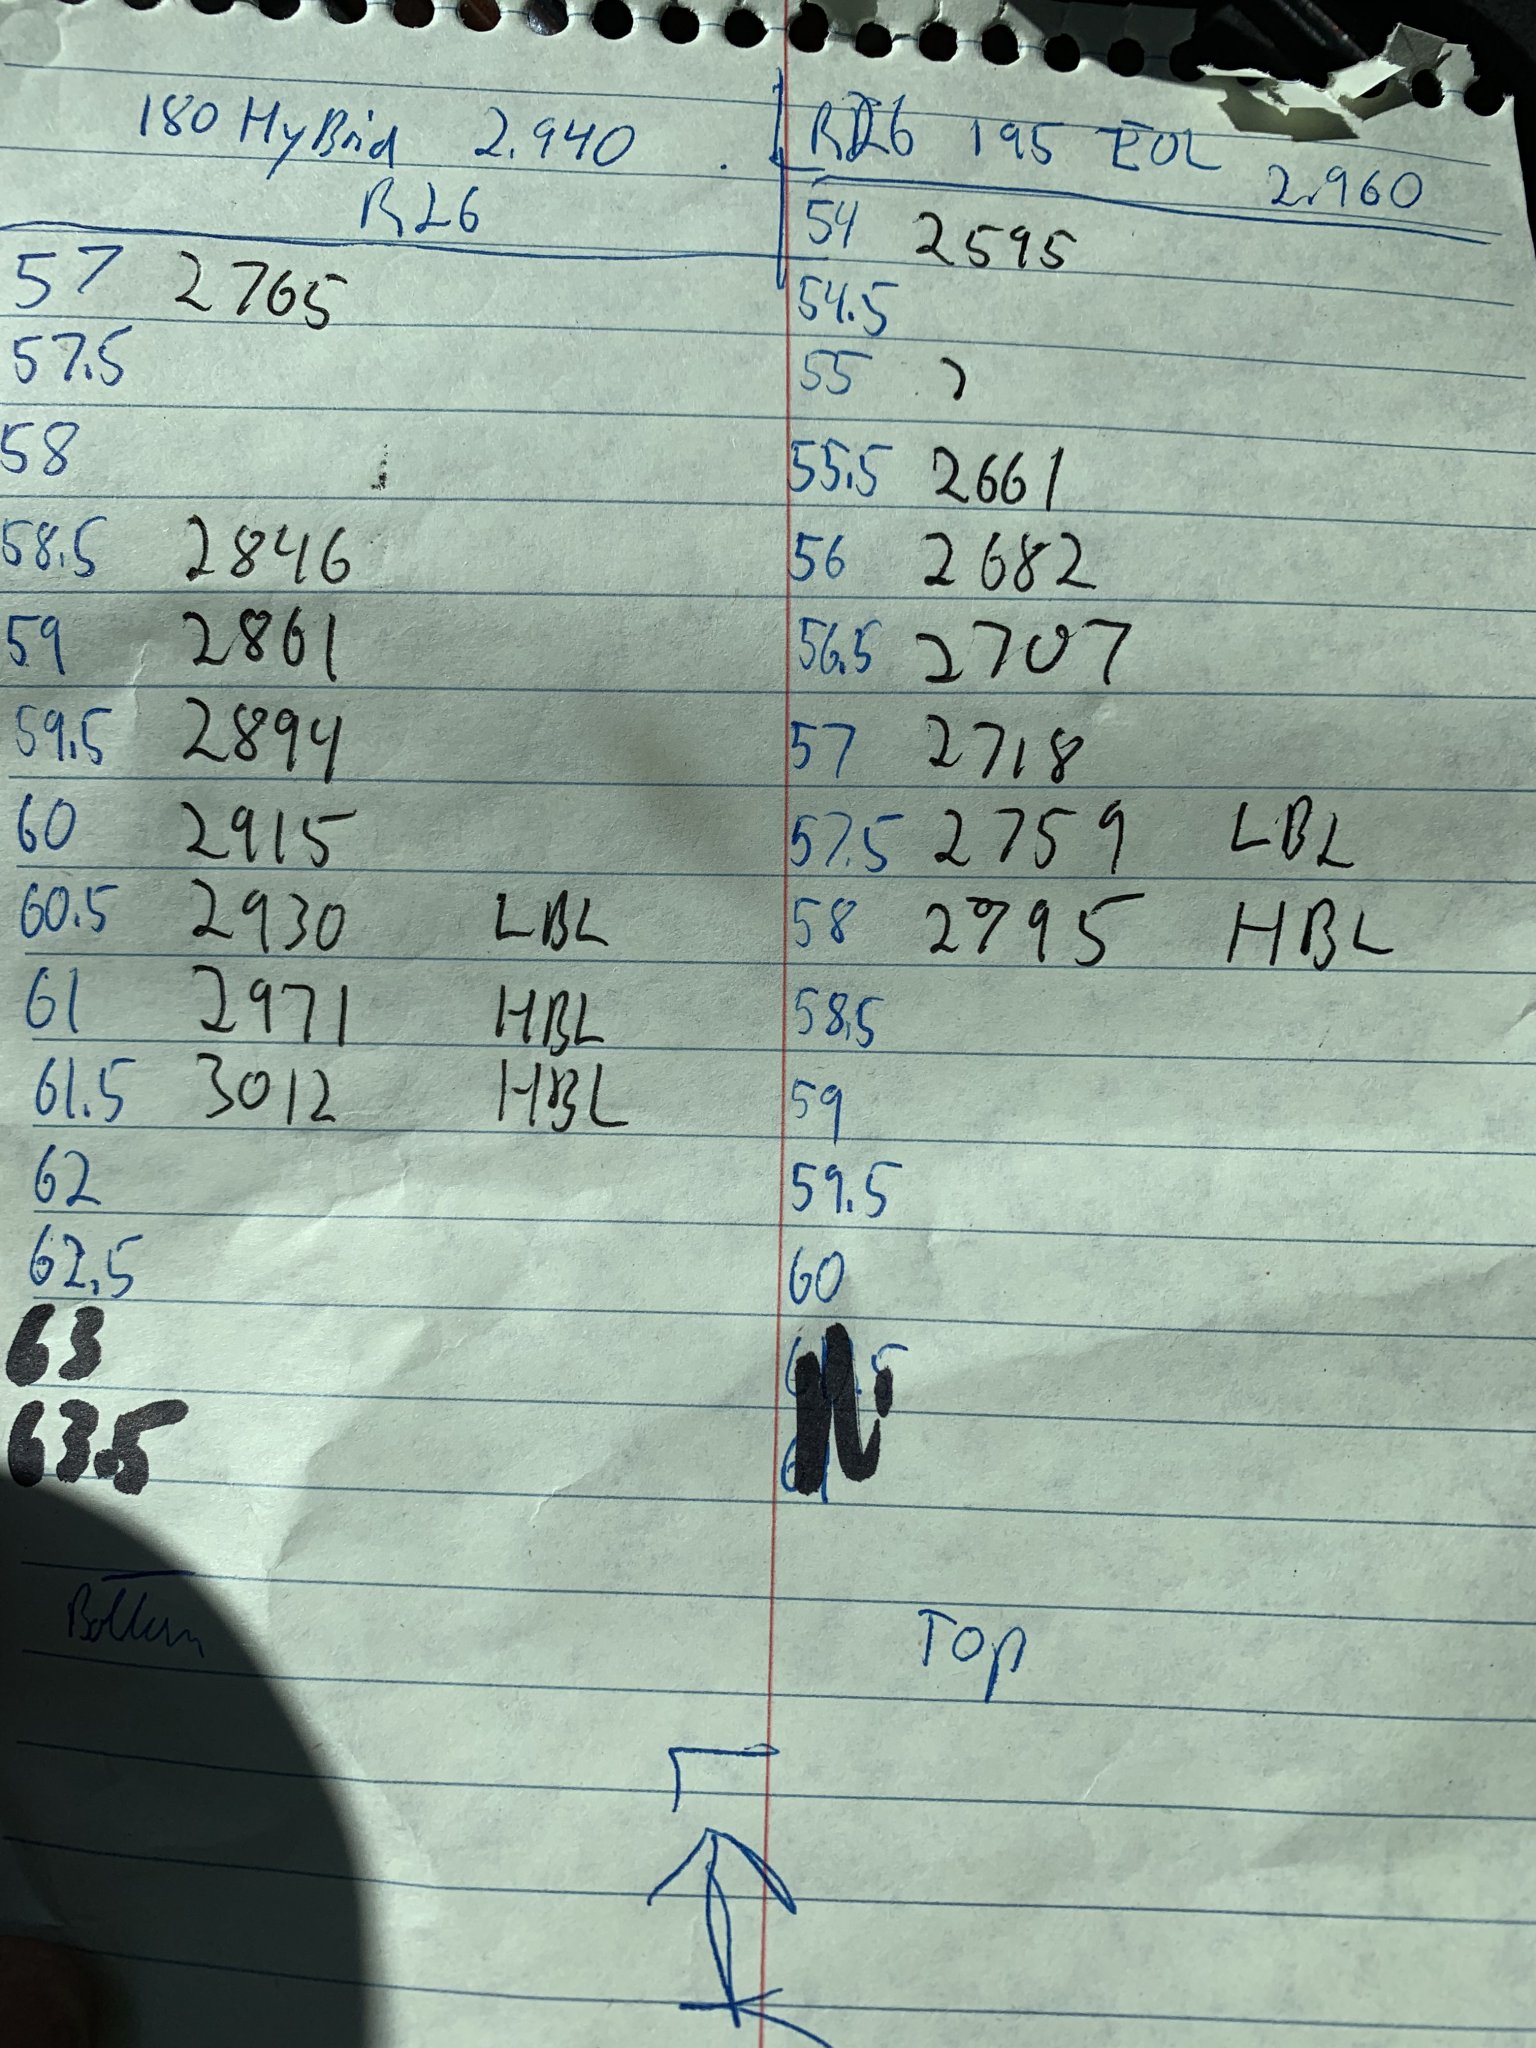 180 HyBrid 2.940
RL6
57 2765
57.5
58
58.5 2846
59 2861
59.5 2894
60 2915
60.5 2930 LBL
61 2971 HBL
61.5 3012 HBL
62
62.5
63
63.5
Bottom
RL26 195 EOL
2.960
54 2595
54.5
55 ?
55.5 2661
56 2682
56.5 2707
57 2718
57.5 2759 LBL
58 2795 HBL
58.5
59
59.5
60
Top